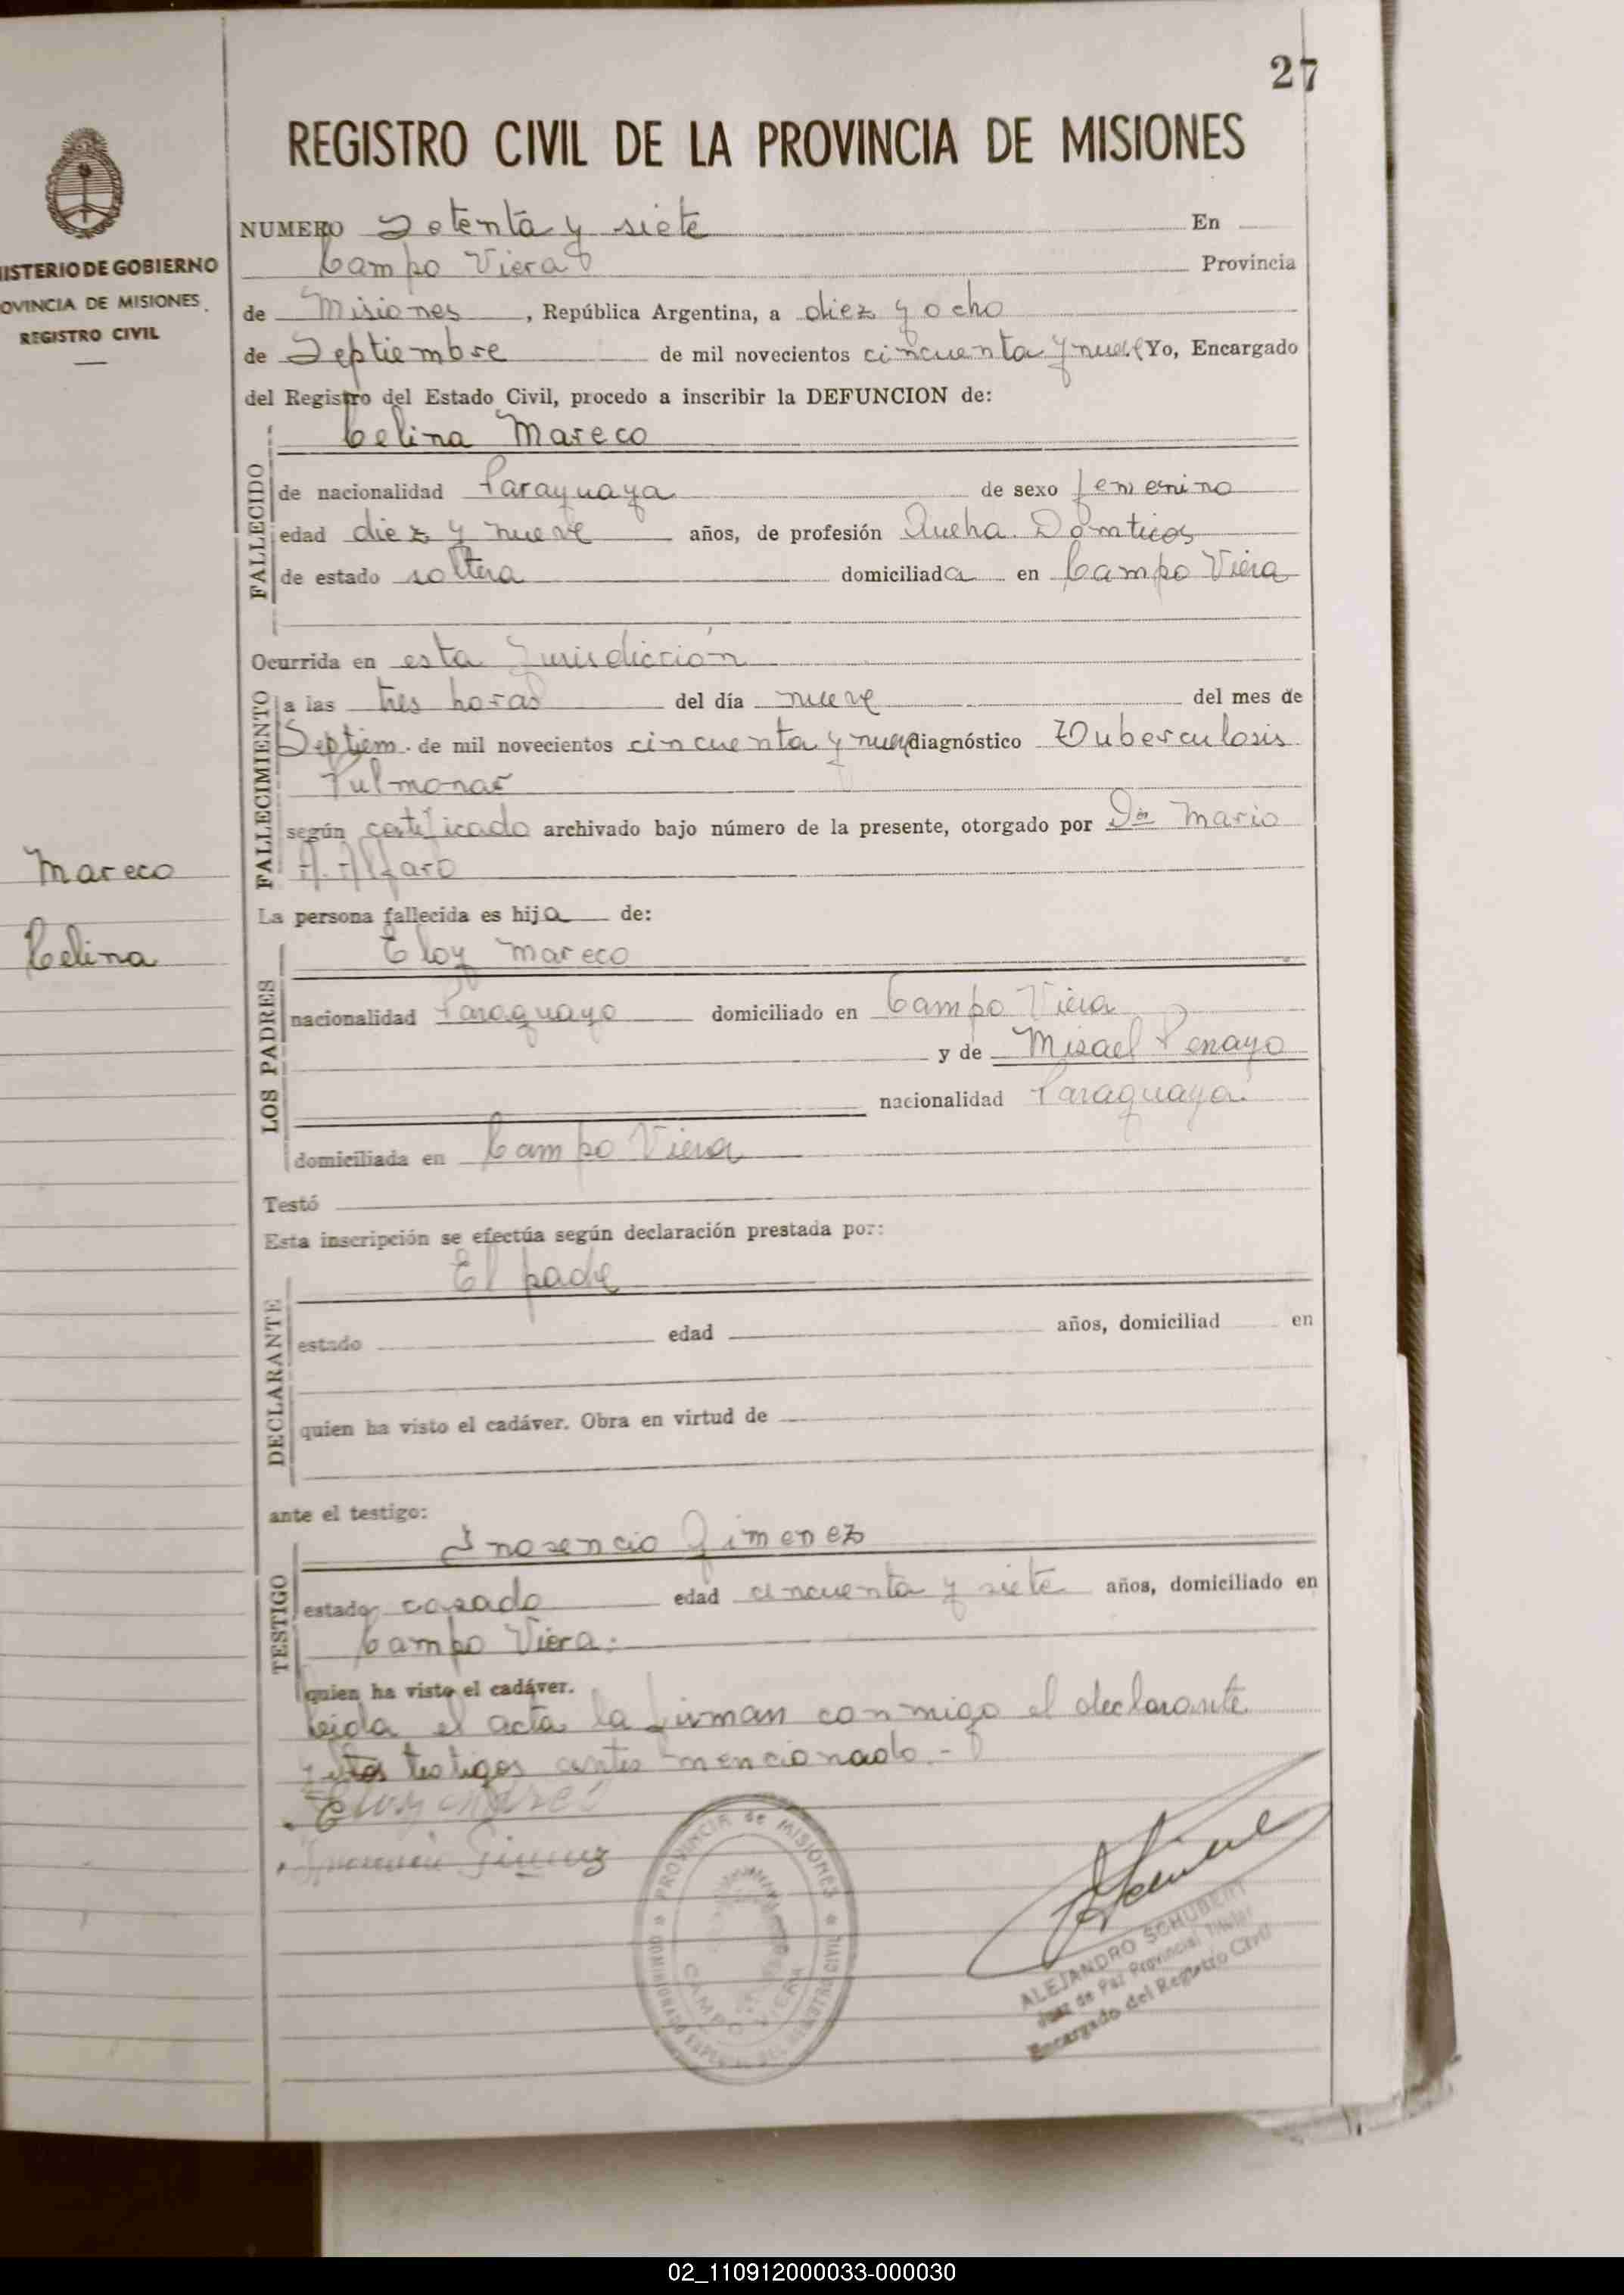 27
REGISTRO CIVIL DE LA PROVINCIA DE MISIONES
NUMERO Setenta y siete En
Campo Viera Provincia
de Misiones, República Argentina, a diez y ocho
de Septiembre de mil novecientos cincuenta y nueve Yo, Encargado
del Registro del Estado Civil, procedo a inscribir la DEFUNCION de:
Celina Mareco
FALLECIDO
de nacionalidad Paraguaya de sexo femenino
edad diez y nueve años, de profesión
de estado soltera domiciliada en Campo Viera
Ocurrida en esta Jurisdicción
FALLECIMIENTO
a las tres horas del día nueve del mes de
Septiem. de mil novecientos cincuenta y nueve diagnóstico Tuberculosis
Pulmonar
según certificado archivado bajo número de la presente, otorgado por Dr Mario
A. Alfaro
La persona fallecida es hija de:
LOS PADRES
Eloy Mareco
nacionalidad Paraguayo domiciliado en Campo Viera
y de Misael Penayo
nacionalidad Paraguaya
domiciliada en Campo Viera
Testó
Esta inscripción se efectúa según declaración prestada por:
DECLARANTE
El padre
estado edad años, domiciliad en
quien ha visto el cadáver. Obra en virtud de
ante el testigo:
TESTIGO
Inosencio Jimenez
estado casado edad cincuenta y siete años, domiciliado en
Campo Viera.
quien ha visto el cadáver.
leida el acta la firman conmigo el declarante
y testigos antes mencionado.-
Eloy
PROVINCIA de MISIONES
CAMPO VIERA
ALEJANDRO SCHUBERT
Juez de Paz Provincial Titular
Encargado del Registro Civil
MINISTERIO DE GOBIERNO
PROVINCIA DE MISIONES
REGISTRO CIVIL
Mareco
Celina
02_110912000033-000030